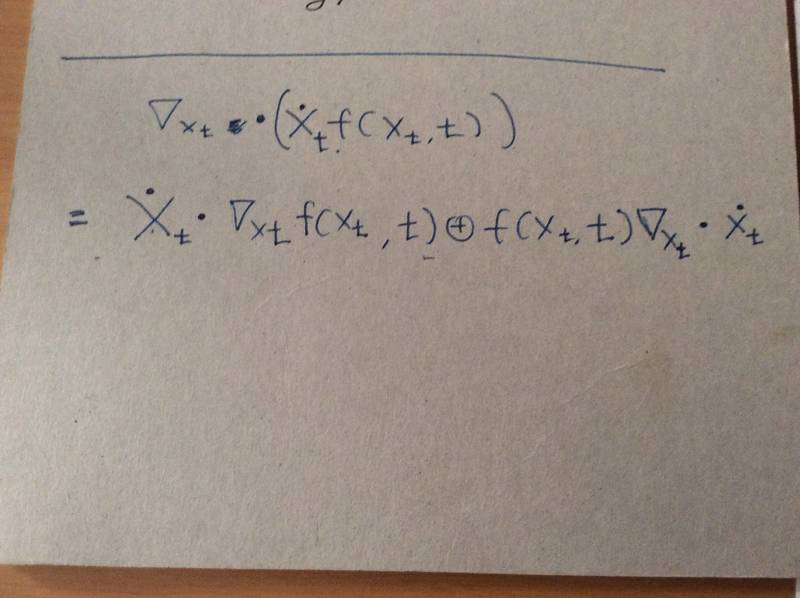 ∇ₓₜ · (Ẋₜ f(xₜ, t))
= Ẋₜ · ∇ₓₜ f(xₜ, t) ⊕ f(xₜ, t) ∇ₓₜ · ẋₜ